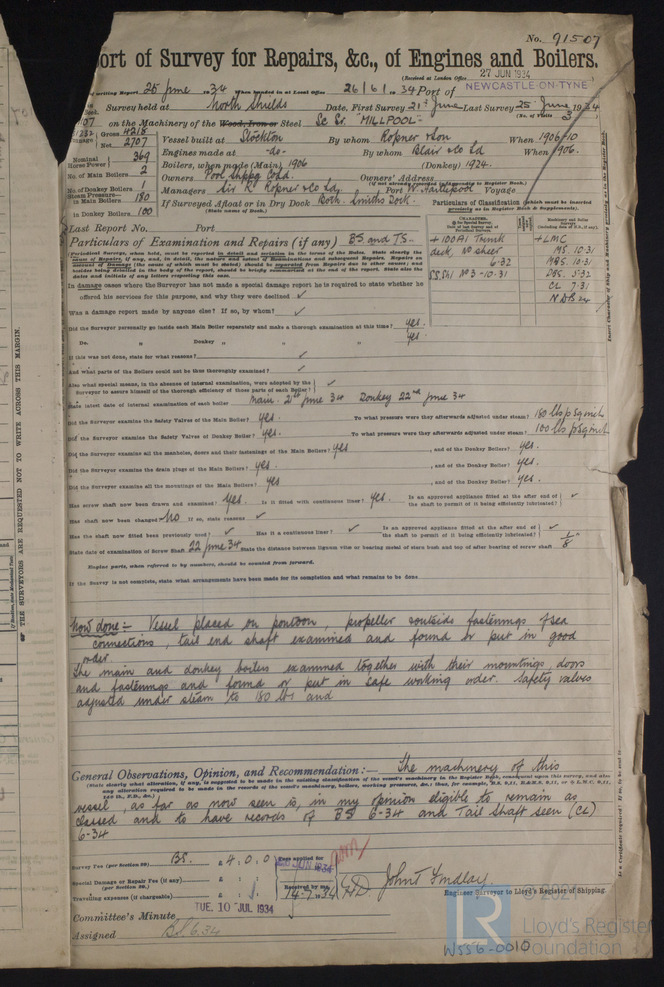 No. 91507
ort of Survey for Repairs, &c., of Engines and Boilers.
(Received at London Office 27 JUN 1934
of writing Report 25 June 1934 When handed in at Local Office 26/6/1934 Port of NEWCASTLE-ON-TYNE
Survey held at North Shields Date, First Survey 21st June Last Survey 25 June 1934
(No. of Visits 3)
on the Machinery of the Wood, Iron or Steel Sc Sr. "MILLPOOL"
Gross 4218
Net 2707
Vessel built at Stockton By whom Ropner & Son When 1906-10
Engines made at -do- By whom Blair & Co Ld When 1906.
Nominal Horse Power 369
Boilers, when made (Main) 1906 (Donkey) 1924.
No. of Main Boilers 2
Owners Pool Shipg Co Ld. Owners' Address
(if not already recorded in Appendix to Register Book.)
No. of Donkey Boilers 1
Managers Sir R. Ropner & Co Ld Port W. Hartlepool Voyage
Steam Pressure—
in Main Boilers 180
If Surveyed Afloat or in Dry Dock Both. Smiths Dock.
(State name of Dock.)
in Donkey Boilers 100
Particulars of Classification (which must be inserted precisely as in Register Book & Supplements).
Last Report No. Port
Particulars of Examination and Repairs (if any) BS and TS.
+100A1 Trunk
deck, no sheer
6-32
SS.Shl No 3-10-31
+LMC
MS. 10.31
MBS. 10.31
DBS. 5.32
CL 7.31
NDB 24
In damage cases where the Surveyor has not made a special damage report he is required to state whether he
offered his services for this purpose, and why they were declined ✓
Was a damage report made by anyone else? If so, by whom? ✓
Did the Surveyor personally go inside each Main Boiler separately and make a thorough examination at this time? yes.
Do. " Donkey " " " yes.
If this was not done, state for what reasons? ✓
And what parts of the Boilers could not be thus thoroughly examined? ✓
Also what special means, in the absence of internal examination, were adopted by the
Surveyor to assure himself of the thorough efficiency of those parts of each Boiler? ✓
State latest date of internal examination of each boiler Main. 21st June 34 Donkey 22nd June 34
Did the Surveyor examine the Safety Valves of the Main Boiler? yes. To what pressure were they afterwards adjusted under steam? 180 lbs p sq inch
Did the Surveyor examine the Safety Valves of Donkey Boiler? yes. To what pressure were they afterwards adjusted under steam? 100 lbs p sq inch
Did the Surveyor examine all the manholes, doors and their fastenings of the Main Boilers? yes, and of the Donkey Boiler? yes.
Did the Surveyor examine the drain plugs of the Main Boilers? yes, and of the Donkey Boiler? yes.
Did the Surveyor examine all the mountings of the Main Boilers? yes, and of the Donkey Boiler? yes.
Has screw shaft now been drawn and examined? Yes. Is it fitted with continuous liner? yes. Is an approved appliance fitted at the after end of
the shaft to permit of it being efficiently lubricated? ✓
Has shaft now been changed? No If so, state reasons ✓
Has the shaft now fitted been previously used? ✓ Has it a continuous liner? ✓ Is an approved appliance fitted at the after end of
the shaft to permit of it being efficiently lubricated? ✓
State date of examination of Screw Shaft 22 June 34 State the distance between lignum vitæ or bearing metal of stern bush and top of after bearing of screw shaft 1/8"
Engine parts, when referred to by numbers, should be counted from forward.
If the Survey is not complete, state what arrangements have been made for its completion and what remains to be done
Now done:- Vessel placed on pontoon, propeller & outside fastenings of sea
connections, tail end shaft examined and found or put in good
order
The main and donkey boilers examined together with their mountings, doors
and fastenings and found or put in safe working order. Safety valves
adjusted under steam to 180 lbs and
General Observations, Opinion, and Recommendation:— The machinery of this
vessel, as far as now seen is, in my opinion eligible to remain as
classed and to have records of BS 6-34 and Tail Shaft seen (CL)
6-34
Survey Fee (per Section 29) BS. £ 4:0:0
Fees applied for
JUN 1934
Special Damage or Repair Fee (if any) £ : :
(per Section 29.)
Received by me,
14-7-1934
Travelling expenses (if chargeable) £ : :
John T Findlay
Engineer Surveyor to Lloyd's Register of Shipping.
Committee's Minute TUE. 10 JUL 1934
Assigned BS 6.34
© 2021
LR
Lloyd's Register
Foundation
W556-0010
OF THE SURVEYORS ARE REQUESTED NOT TO WRITE ACROSS THIS MARGIN.